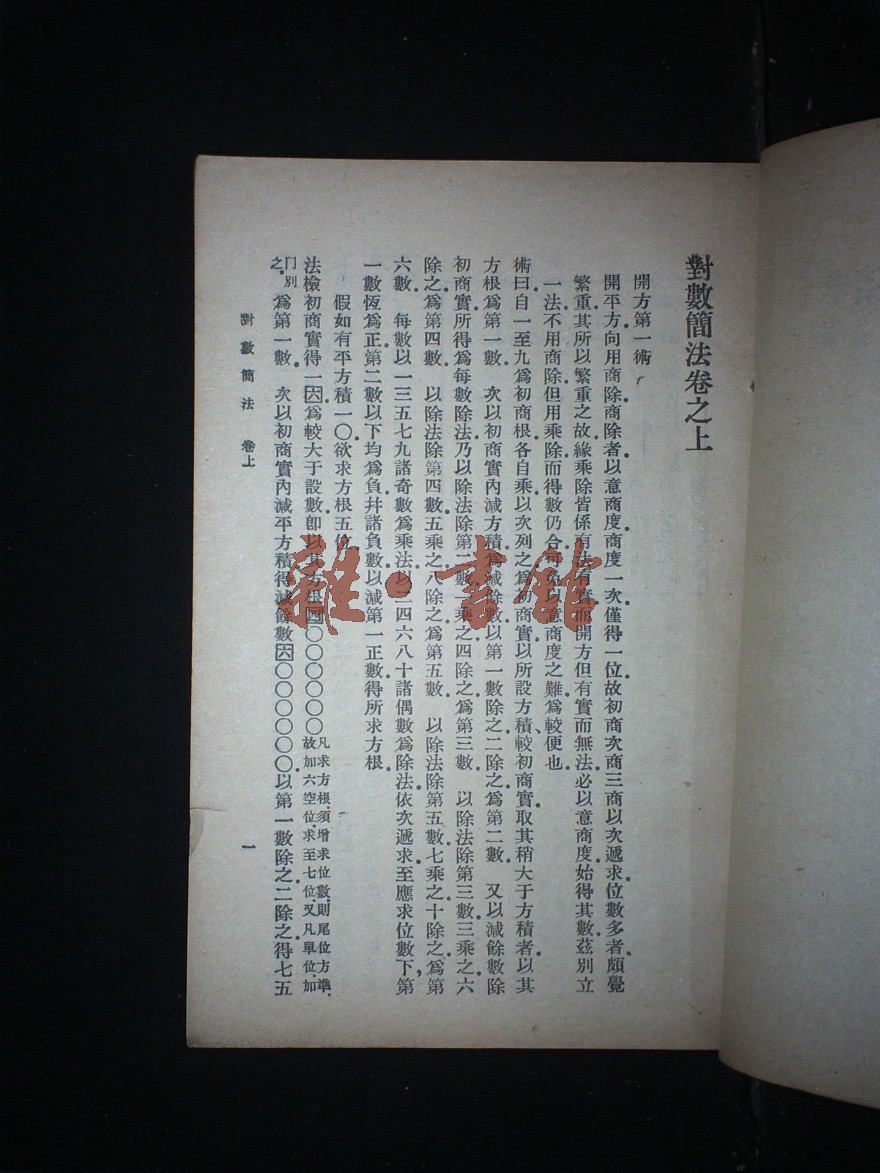 對數簡法卷之上
開方第一術
開平方向用商除商除者以意商度商度一次僅得一位故初商次商三商以次遞求位數多者頗覺
繁重其所以繁重之故緣乘除皆係有法有實而開方但有實而無法必以意商度始得其數茲別立
一法不用商除但用乘除而得數仍合初免以意商度之難爲較便也
術曰自一至九爲初商根各自乘以次列之爲初商實以所設方積較初商實取其稍大于方積者以其
方根爲第一數 次以初商實內減方積爲減餘數以第一數除之二除之爲第二數 又以減餘數除
初商實所得爲每數除法乃以除法除第二數一乘之四除之爲第三數 以除法除第三數三乘之六
除之爲第四數 以除法除第四數五乘之八除之爲第五數 以除法除第五數七乘之十除之爲第
六數 每數以一三五七九諸奇數爲乘法以二四六八十諸偶數爲除法依次遞求至應求位數下第
一數恆爲正第二數以下均爲負幷諸負數以減第一正數得所求方根
假如有平方積一〇欲求方根五位
法檢初商實得一六爲較大于設數卽以其方根四〇〇〇〇〇〇凡求方根須增求位數則尾位方準故加六空位求至七位又凡單位加
冂別之爲第一數 次以初商實內減平方積得減餘數六〇〇〇〇〇〇以第一數除之二除之得七五
對數簡法 卷上
一
雜·書館